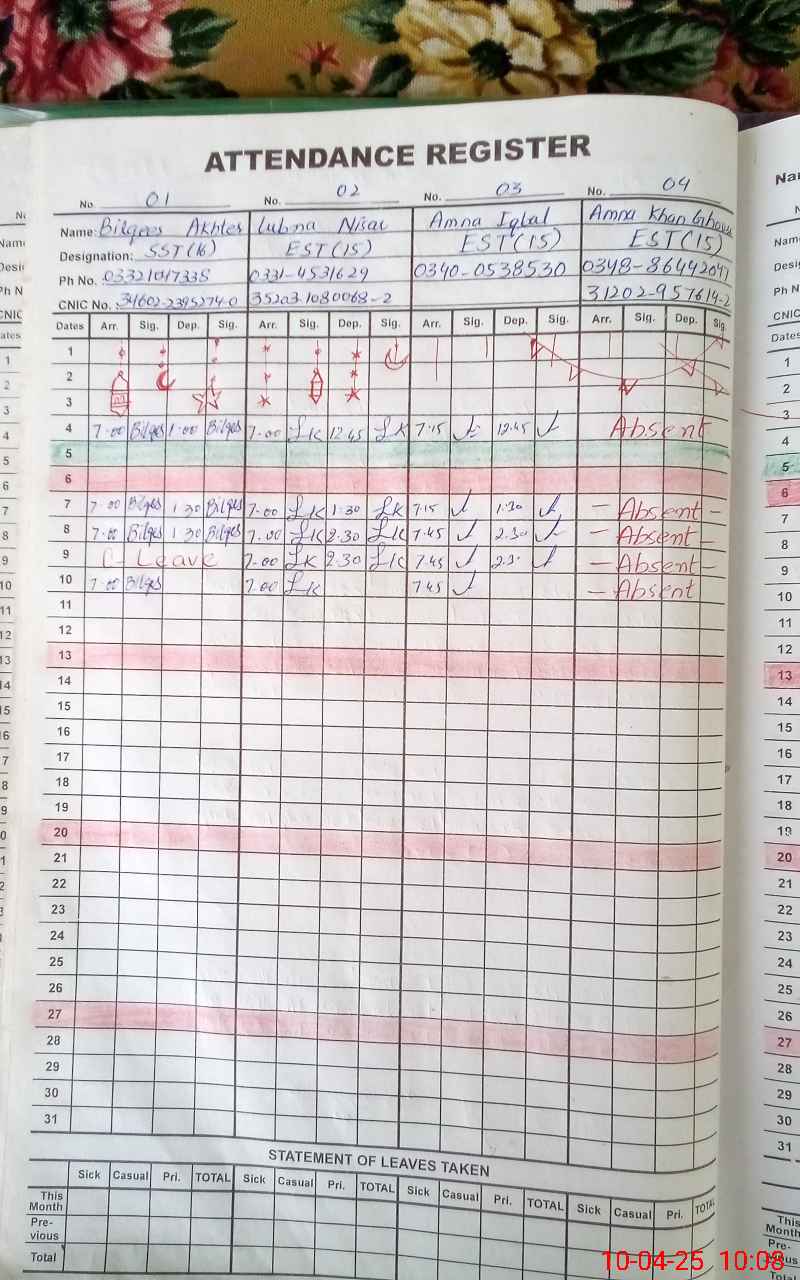 ATTENDANCE REGISTER
No 01 No. 02 No. 03 No. 04
Name: Bilqees Akhter Lubna Nisar Amna Iqbal Amna Khan
Designation: SST(16) EST(15) EST(15) EST(15)
Ph No. 0331-4531629 0340-0538530
CNIC No. 35203-1080068-2
Dates Arr. Sig. Dep. Sig. Arr. Sig. Dep. Sig. Arr. Sig. Dep. Sig. Arr. Sig. Dep. Sig.
1
2
3
4 7.00 Bilqes 1.00 Bilqes 7.00 LK 12.45 LK 7.15 12.45 Absent
5
6
7 7.00 Bilqes 1.30 Bilqes 7.00 LK 1.30 LK 7.15 1.30 - Absent -
8 7.00 Bilqes 1.30 Bilqes 7.00 LK 2.30 LK 7.45 2.30 - Absent -
9 C-Leave 7.00 LK 2.30 LK 7.45 2.30 - Absent -
10 7.00 Bilqes 7.00 LK 7.45 - Absent
11
12
13
14
15
16
17
18
19
20
21
22
23
24
25
26
27
28
29
30
31
STATEMENT OF LEAVES TAKEN
Sick Casual Pri. TOTAL Sick Casual Pri. TOTAL Sick Casual Pri. TOTAL Sick Casual Pri. TOTAL
This Month
Pre-
vious
Total
10-04-25 10:08